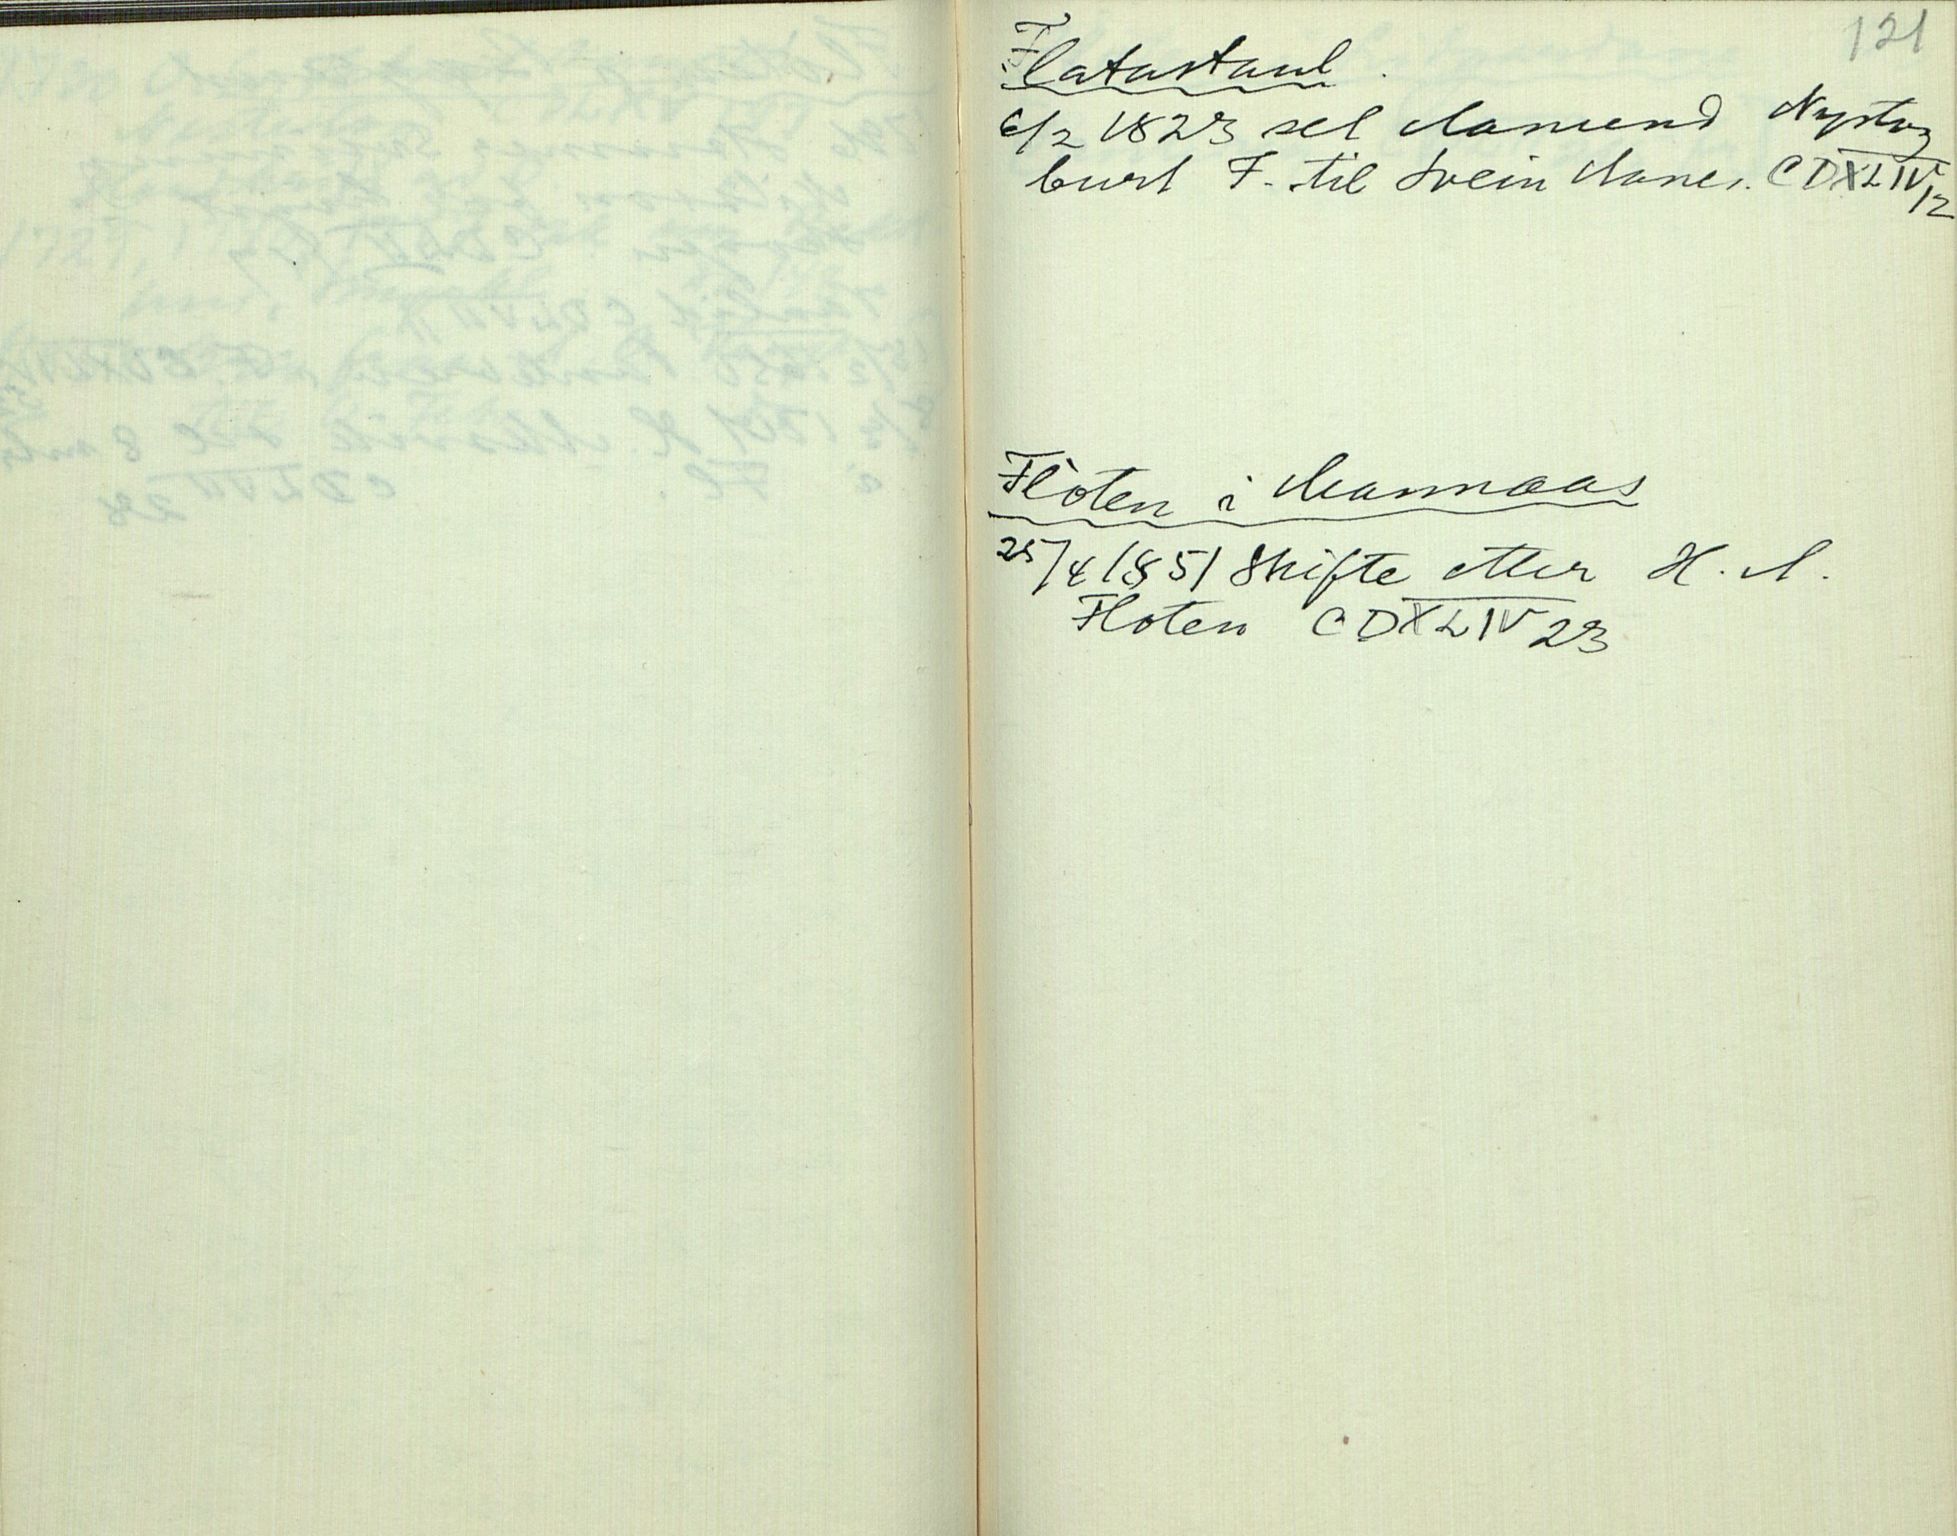 121
Flatastaul.
6/2 1823 sel Aamund Nystog
burt F. til Svein Aanes. CDXLIV 12
Floten i Mannaas
25/4 1851 Skifte etter H. A.
Floten CDXLIV 23